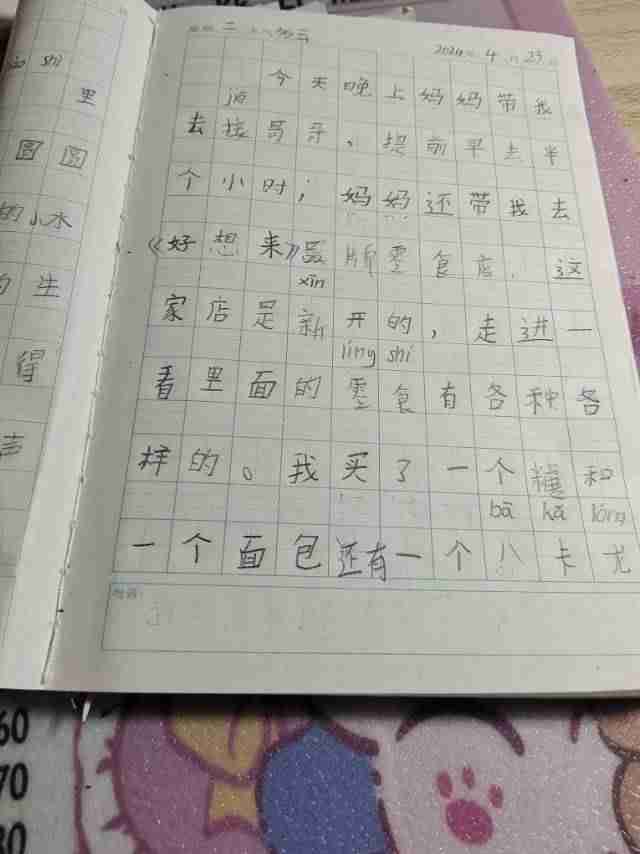 shi
里
圆圆
的小木
生
得
声
二
2024年4月23日
今天晚上妈妈带我
jiē
去接哥哥、提前平去半
个小时；妈妈还带我去
《好想来》 版零食店，这
xīn
家店是新开的，走进一
líng shí
看里面的零食有各种各
样的。我买了一个糖和
bā kǎ lóng
一个面包还有一个八卡尤
60
70
80